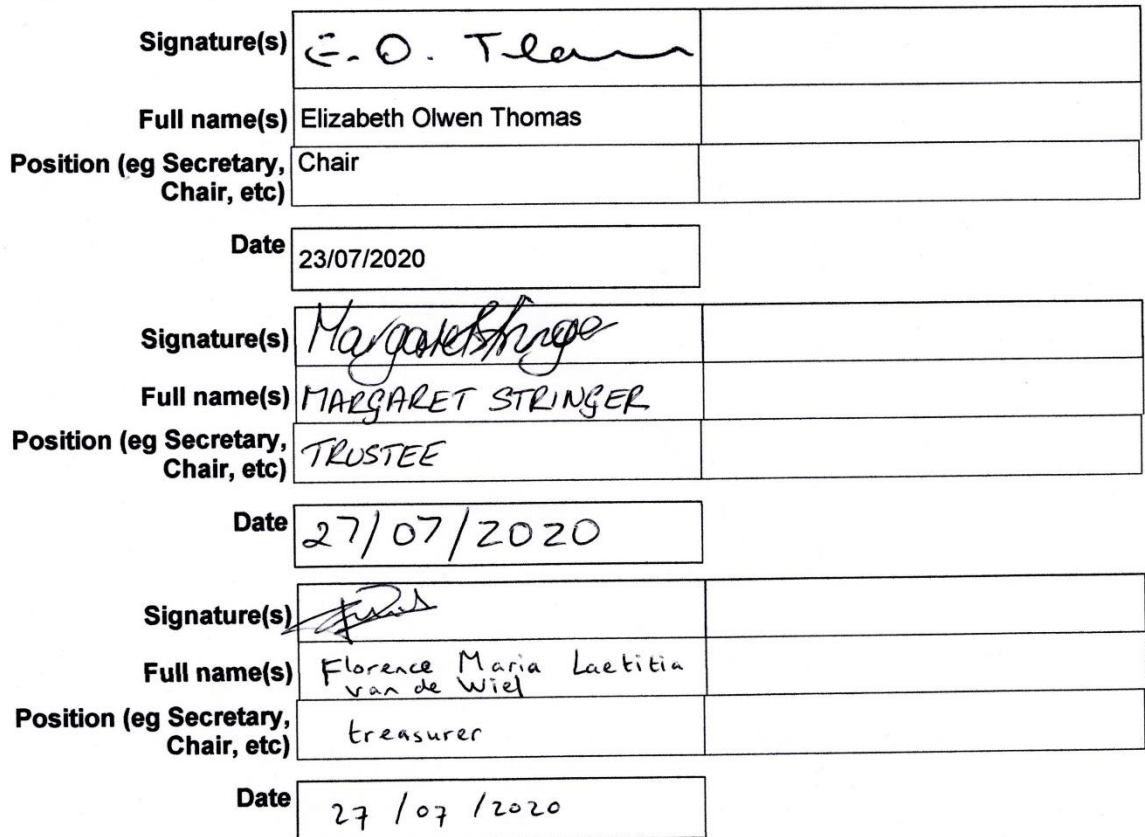 Signature(s) E. O. Thomas
Full name(s) Elizabeth Olwen Thomas
Position (eg Secretary, Chair
Chair, etc)
Date 23/07/2020
Signature(s) Margaret Stringer
Full name(s) MARGARET STRINGER
Position (eg Secretary, TRUSTEE
Chair, etc)
Date 27/07/2020
Signature(s)
Full name(s) Florence Maria Laetitia
van de Wiel
Position (eg Secretary, treasurer
Chair, etc)
Date 27 / 07 / 2020